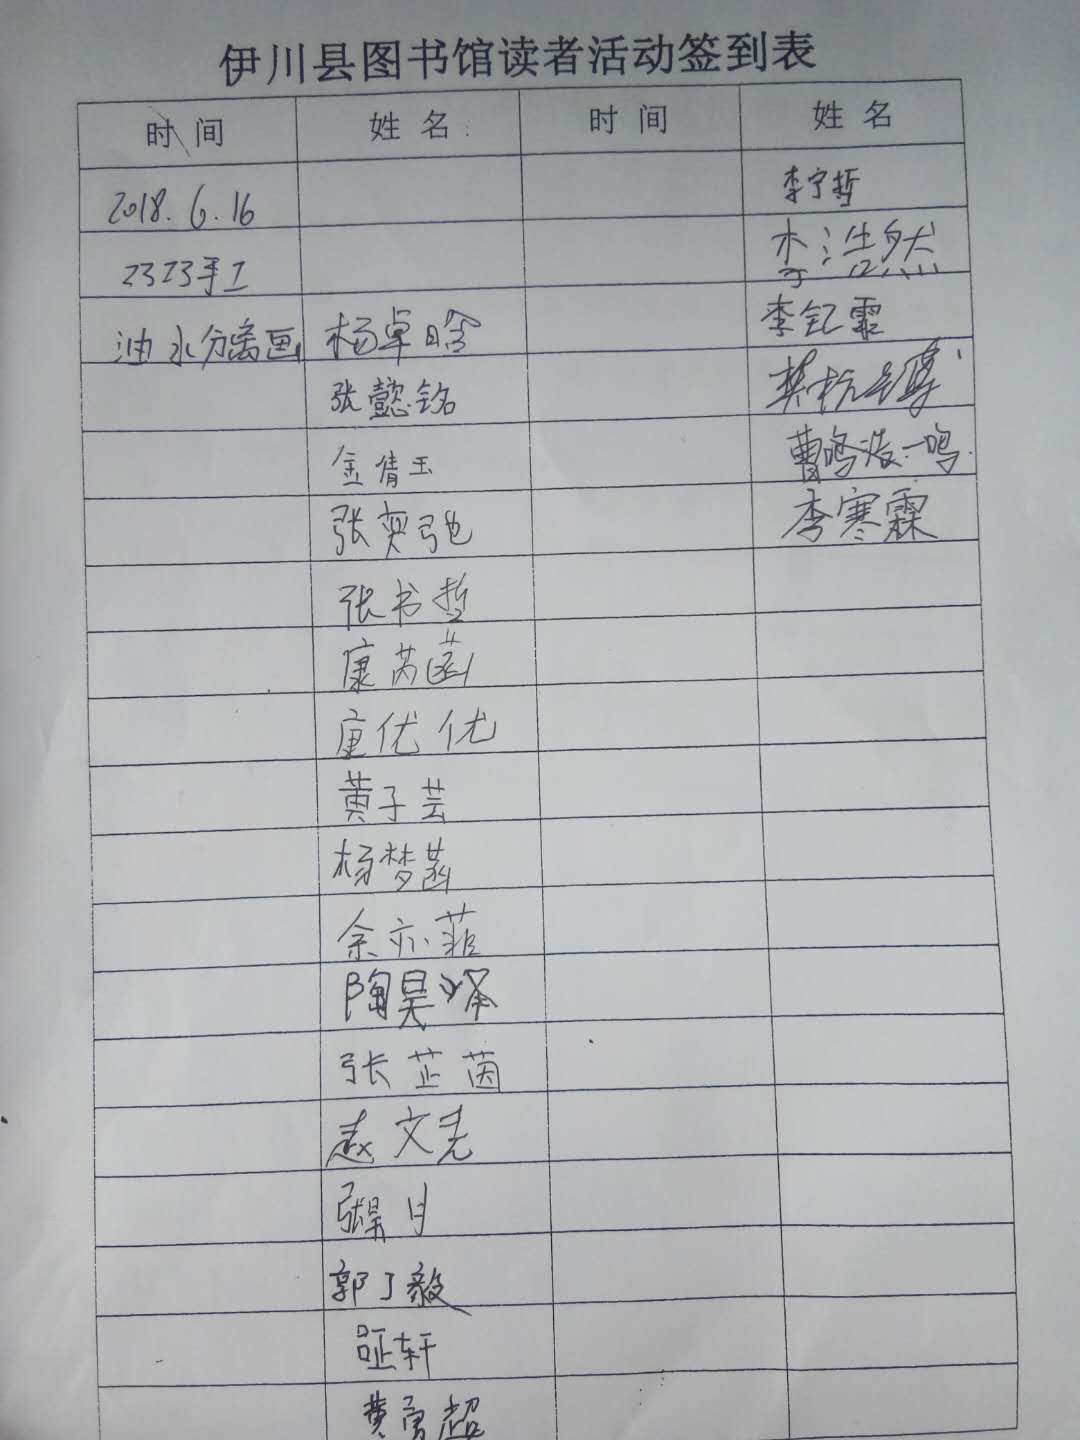 伊川县图书馆读者活动签到表
时间 姓名 时间 姓名
2018.6.16 李宁哲
2323手工 李浩然
油水分离画 杨卓晗 李钇霏
张懿铭
金倩玉 曹鸣浩一鸣
张奕弛 李寒霖
张书哲
康芮菡
康优优
黄子芸
杨梦菡
余亦菲
陶昊泽
张芷茵
赵文尧
张昊月
郭丁毅
轩
黄勇超